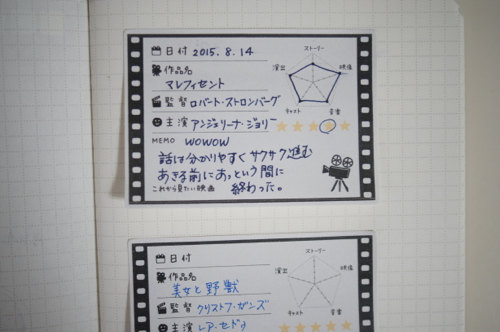 日付 2015. 8. 14
ストーリー
演出
映像
キャスト
音楽
作品名
マレフィセント
監督 ロバート・ストロンバーグ
主演 アンジェリーナ・ジョリー
MEMO WOWOW
話は分かりやすくサクサク進む
あきる前にあっという間に
これから見たい映画 終わった。
日付
ストーリー
演出
映像
キャスト
音楽
作品名
美女と野獣
監督 クリストフ・ガンズ
主演 レア・セドゥ